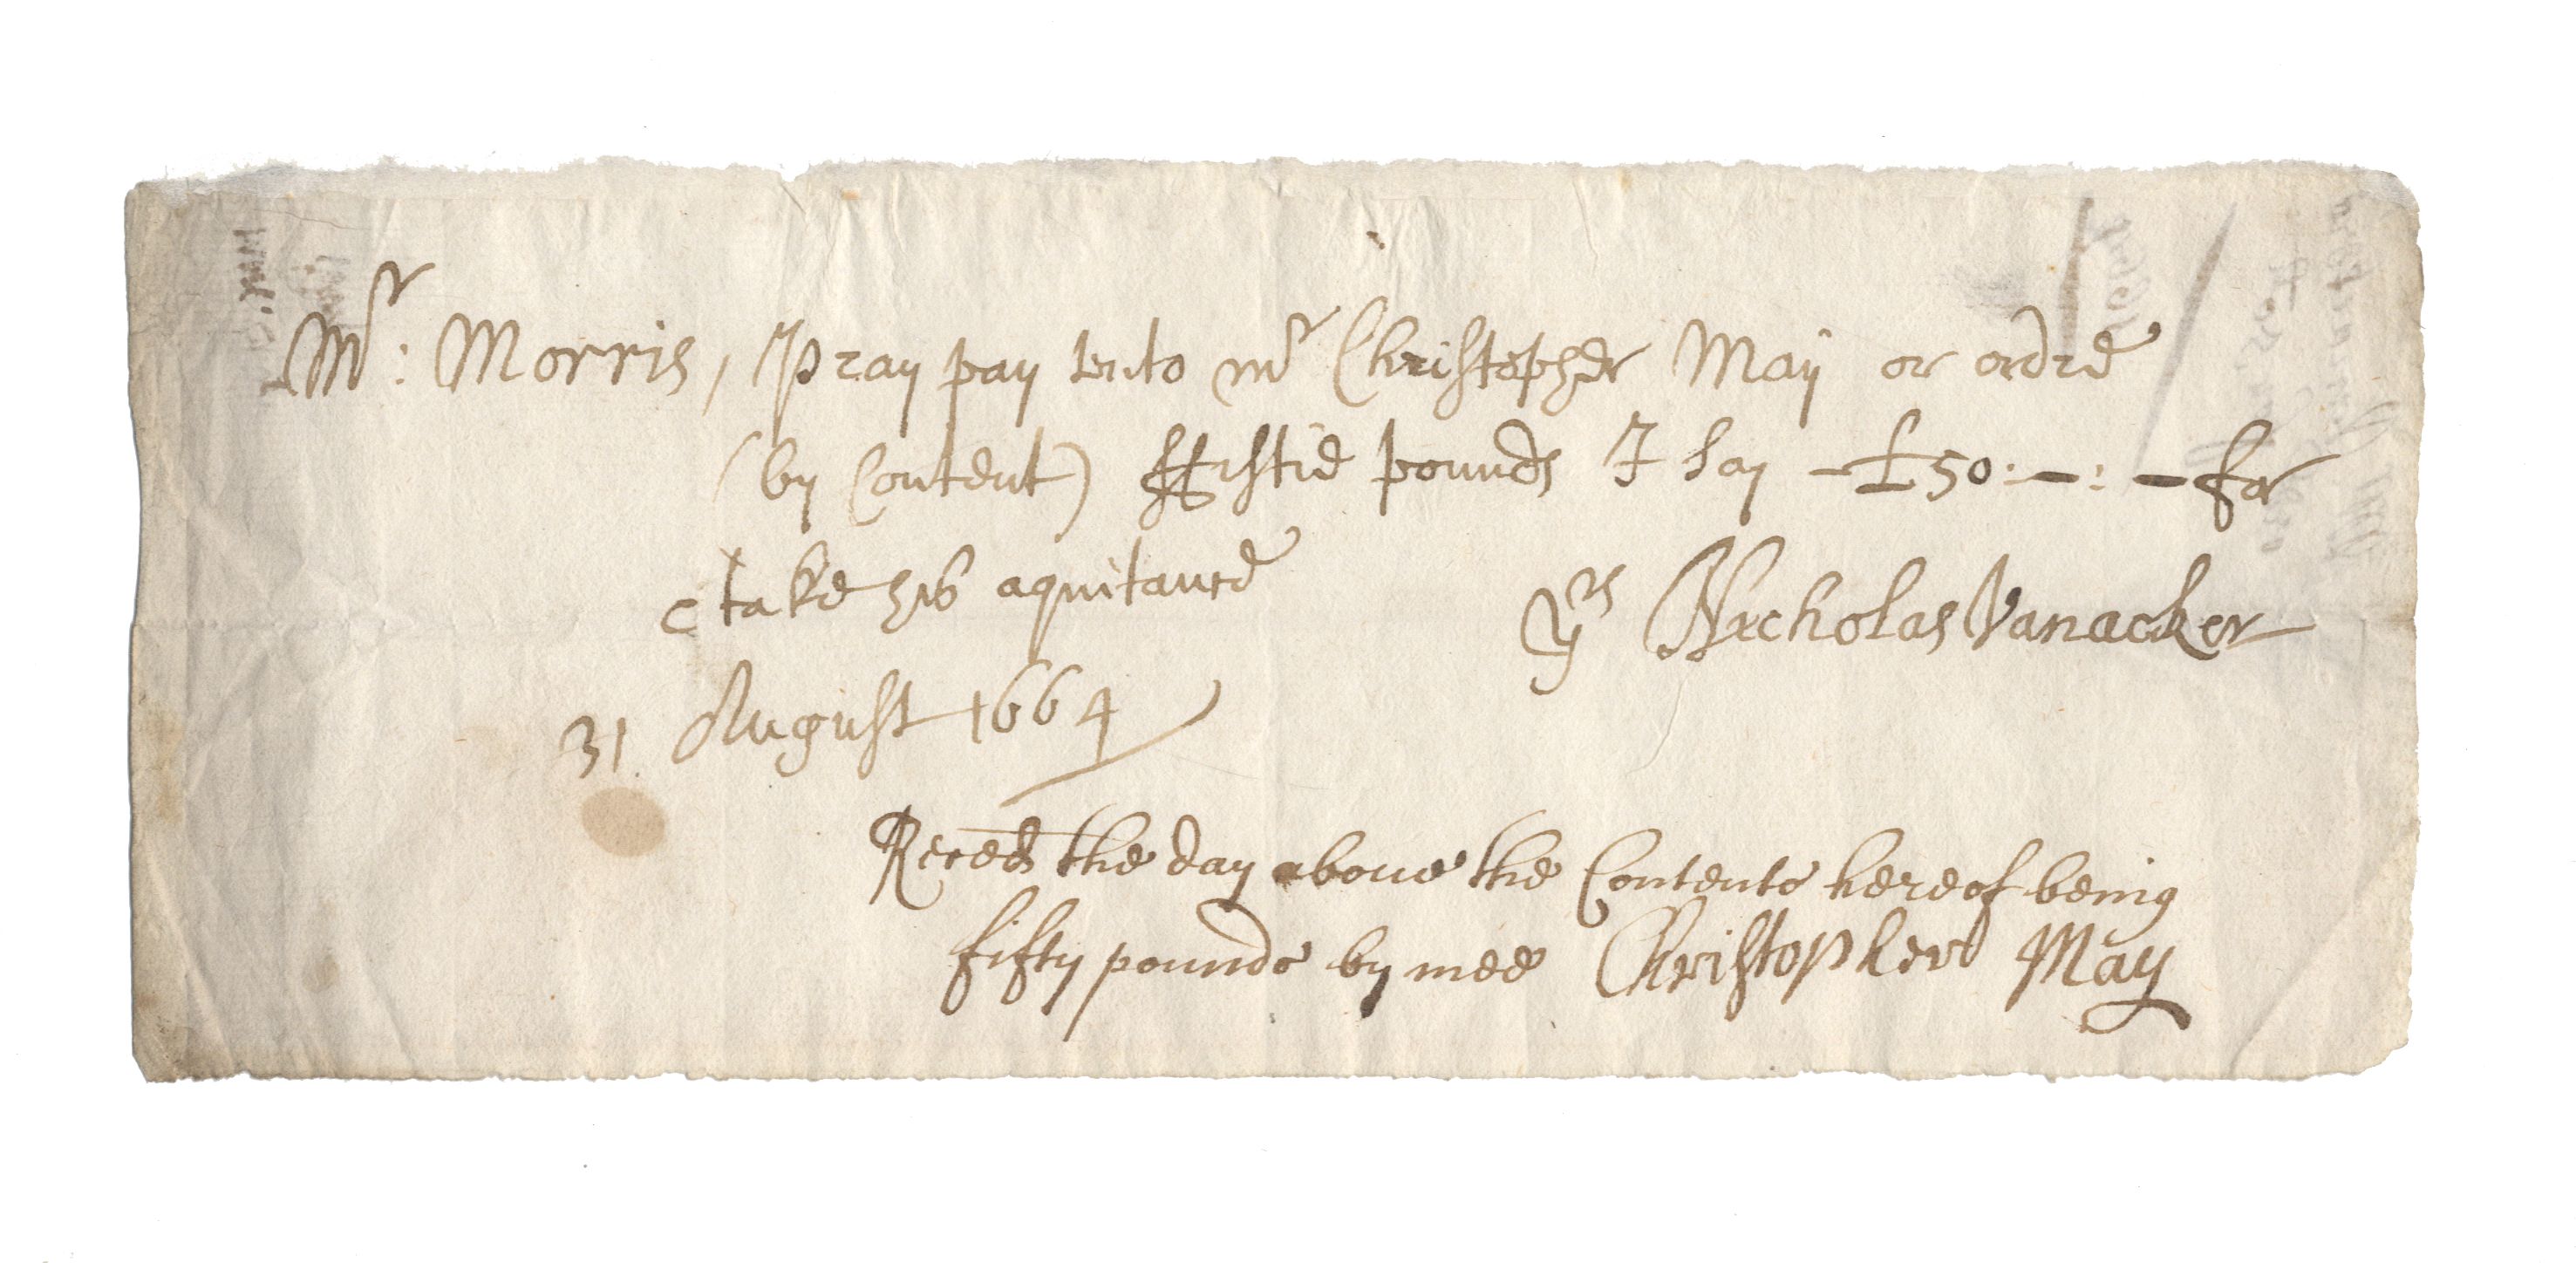 Mr: Morris, Pray pay unto mr Christopher Maij or ordre
(by Content) ffiftie pounds I say – £50:–:– for
& take his aquitance
yrs Nicholas Vanacker
31 August 1664
Receed the day above the Contents hereof being
fifty pounds by mee Christopher May